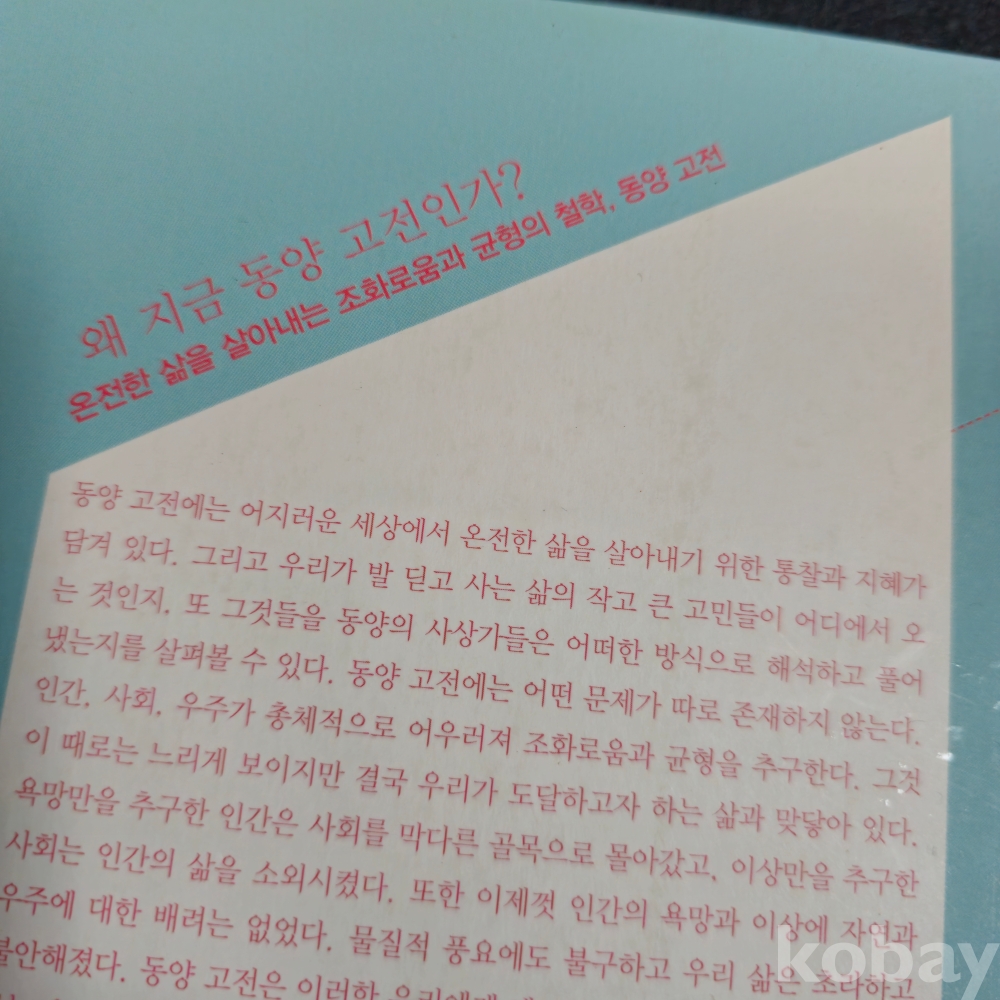 왜 지금 동양 고전인가?
온전한 삶을 살아내는 조화로움과 균형의 철학, 동양 고전
동양 고전에는 어지러운 세상에서 온전한 삶을 살아내기 위한 통찰과 지혜가
담겨 있다. 그리고 우리가 발 딛고 사는 삶의 작고 큰 고민들이 어디에서 오
는 것인지, 또 그것들을 동양의 사상가들은 어떠한 방식으로 해석하고 풀어
냈는지를 살펴볼 수 있다. 동양 고전에는 어떤 문제가 따로 존재하지 않는다.
인간, 사회, 우주가 총체적으로 어우러져 조화로움과 균형을 추구한다. 그것
이 때로는 느리게 보이지만 결국 우리가 도달하고자 하는 삶과 맞닿아 있다.
욕망만을 추구한 인간은 사회를 막다른 골목으로 몰아갔고, 이상만을 추구한
사회는 인간의 삶을 소외시켰다. 또한 이제껏 인간의 욕망과 이상에 자연과
우주에 대한 배려는 없었다. 물질적 풍요에도 불구하고 우리 삶은 초라하고
불안해졌다. 동양 고전은 이러한 우리에게
kobay